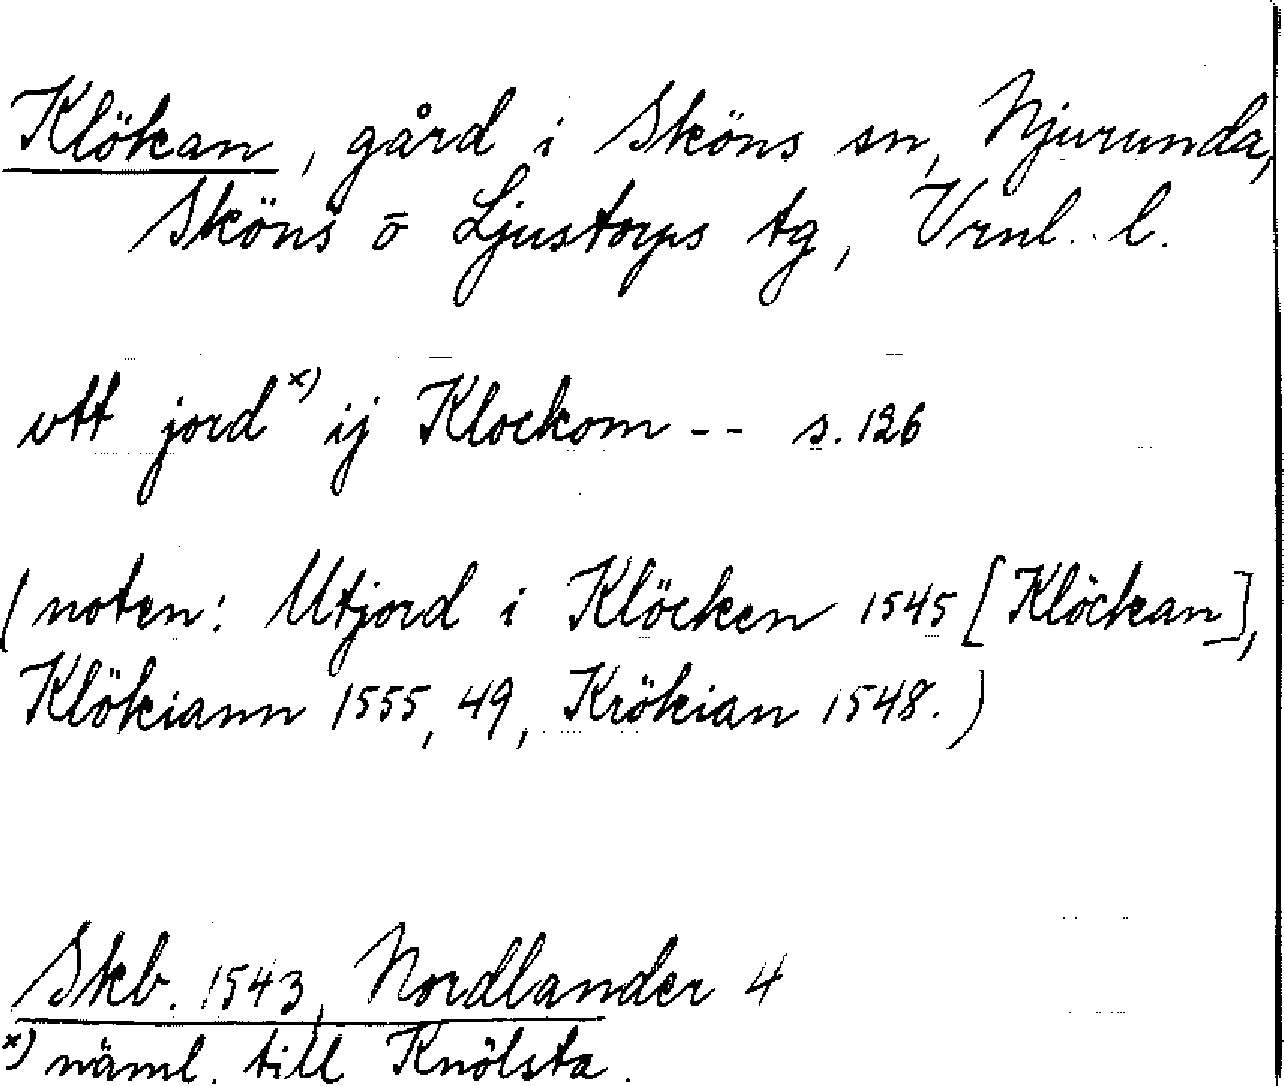 Klökan, gård i Sköns sn, Njurunda,
Sköns o Ljustorps tg, Vrnl. l.
vtt jord x) ij Klockom -- s. 126
(noten: Utjord i Klöcken 1545 [Klöckan],
Klökiann 1555, 49, Krökian 1548.)
Skb. 1543, Nordlander 4
x) näml. till Knölsta.